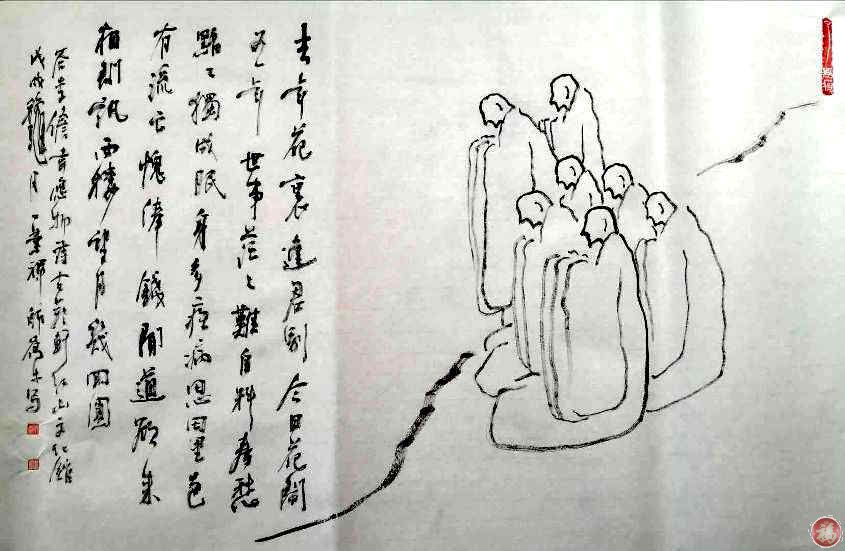 去年花裏逢君别今日花開
又一年世事茫々難自料春愁
黯々獨成眠身多疾病思田里邑
有流亡愧俸錢聞道欲來
相問訊西樓望月幾回圓
答李儋韋應物詩山文化館
戊戌月一葦禪師寫
福